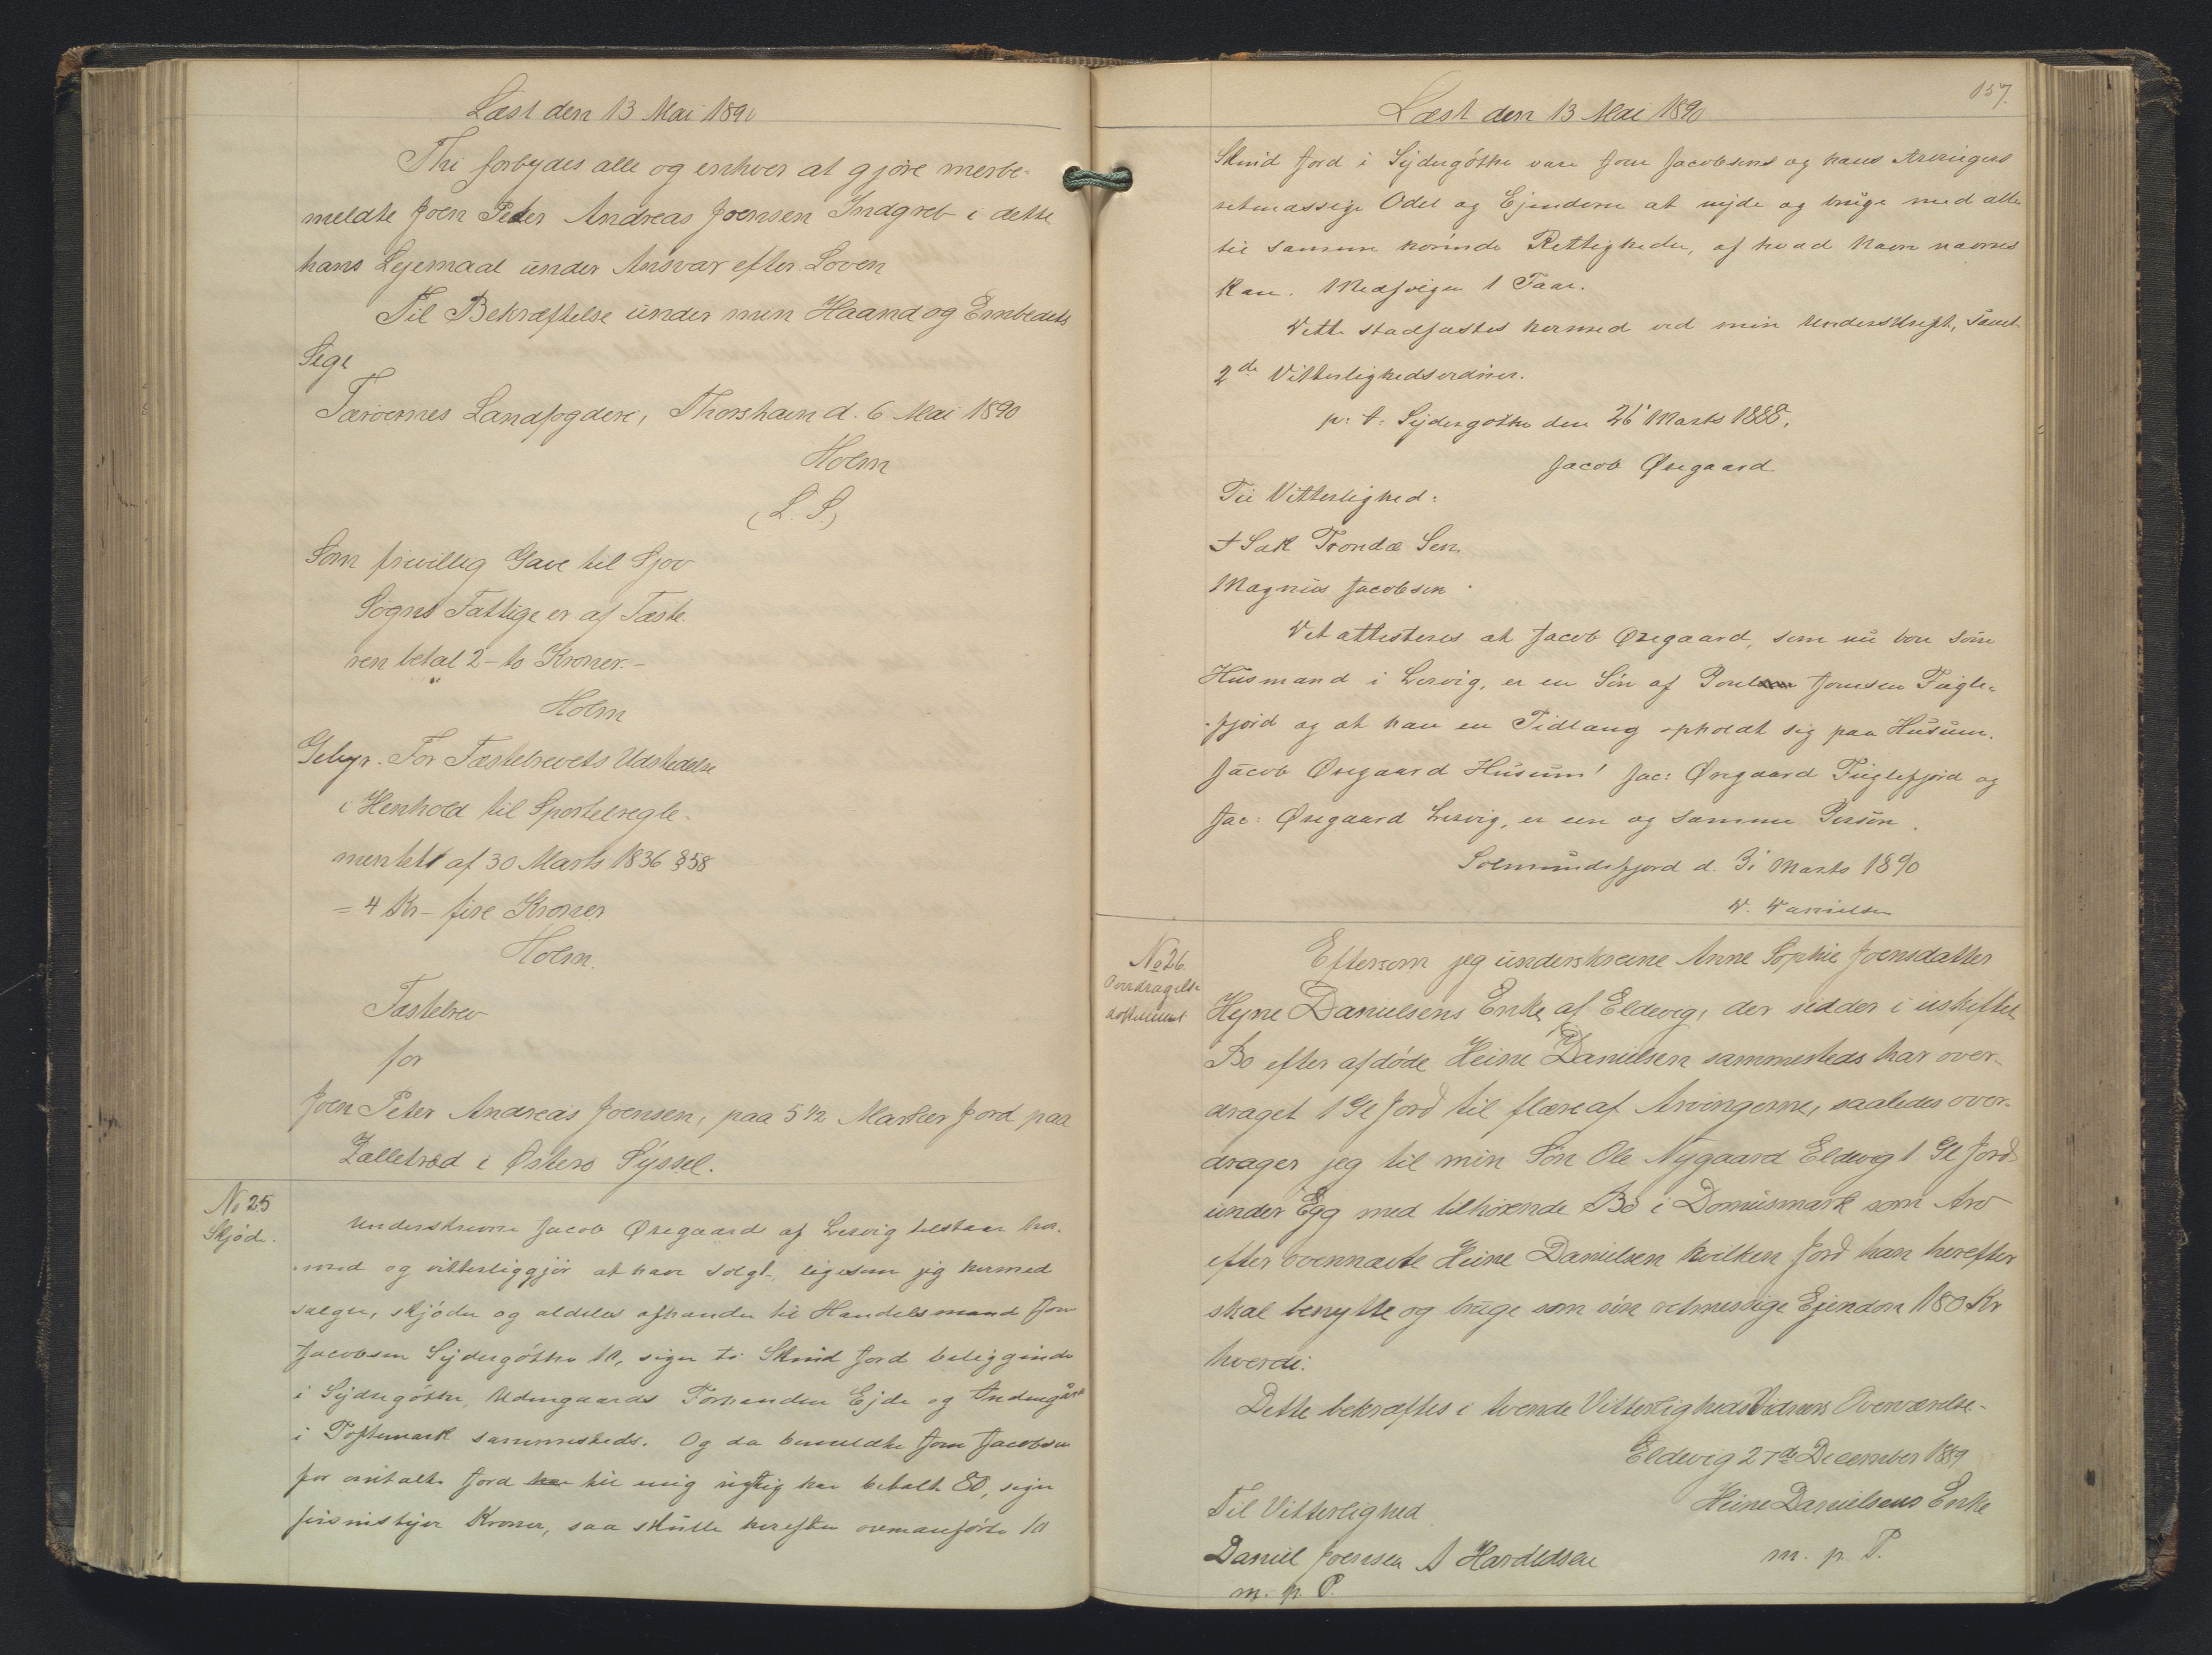 Læst den 13 Mai 1890
Thi forbydes alle og enhver at gjöre merbe-
meldte Joen Peder Andreas Joensen Indgreb i dette
hans Lejemaal under Ansvar efter Loven
Til Bekræftelse under min Haand og Embedets
Segl
Færöernes Landfogderi, Thorshavn d. 6 Mai 1890
Holm
(L. S.)
Som frivillig Gave til Sjov
Sogns Fattige er af Fæste-
ren betal 2 - to Kroner. -
Holm
Gebyr. For Fæstebrevets Udstedelse
i Henhold til Sportelregle-
mentets af 30 Marts 1836 § 58
= 4 Kr - fire Kroner
Holm.
Fæstebrev
for
Joen Peter Andreas Joensen, paa 5 1/2 Marker Jord paa
Zelletræd i Østerø Sýssel.
No 25
Skjöde.
Underskrevne Jacob Øregaard af Lervig tilstaar her-
med og vitterliggjör at have solgt, ligesom jeg hermed
sælger, skjöder og aldeles afhænder til Handelsmand Joen
Jacobsen Sydergöthe 10, siger ti Skind Jord beliggende
i Sydregöthe, Udengaards Forhenden Ejde og Indengård
i Toftemark sammesteds. Og da bemeldte Joen Jacobsen
for omtalte Jord har til mig rigtig har betalt 80, siger
firsindstyve Kroner, saa skulle herefter ovenanförte 10
157.
Læst den 13 Mai 1890
Skind Jord i Sydergöthe være Joen Jacobsens og hans Arvingers
retmæssige Odel og Ejendom at nyde og bruge med alle
til samme hörende Rettigheder, af hvad Navn nævnes
kan. Medfölger 1 Faar.
Dette stadfæstes hermed ved min Underskrift, samt
2de Vitterlighedsvidner.
p. t. Sydergöthe den 26' Marts 1888.
Jacob Øregaard
Til Vitterlighed:
I Sak Trondæ Sen
Magnus Jacobsen
Det attesteres at Jacob Øregaard, som nu bor som
Husmand i Lervig, er en Sön af Poul Joensen Fugle-
fjord og at han en Tidlang opholdt sig paa Husum.
Jacob Øregaard Husum' Jac: Øregaard Fuglefjord og
Jac: Øregaard Lervig, er een og samme Person.
Solmundefjord d. 3' Marts 1890
D. Danielsen
No 26.
Overdragelse
dokument
Eftersom jeg underskrevne Anne Sophie Joensdatter
Hejne Danielsens Enke, af Eldevig, der sidder i uskiftet
Bo efter afdöde Heine Danielsen sammesteds har over-
draget 1 Gl Jord til flere af Arvingerne, saaledes over-
drager jeg til min Sön Ole Nygaard Eldevig 1 Gl Jord
under Egg med tilhörende Bö i Domusmark som Arv
efter ovennævte Heine Danielsen hvilken Jord han herefter
skal benytte og bruge som sin retmessige Ejendom 180 Kr
hverdi.
Dette bekræftes i tvende Vitterligheds Vidners Overværelse.
Eldevig 27de December 1889
Heine Danielsens Enke
m. p. P.
Til Vitterlighed
Daniel Joensen A Hardedsen
m. p. P.